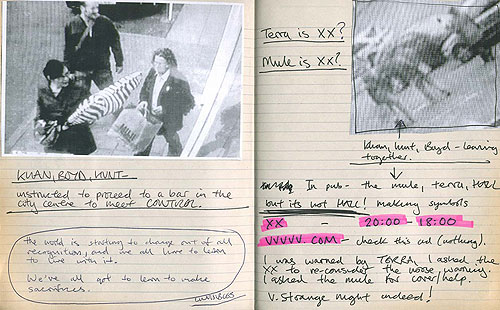 KHAN, BOYD, HUNT -
instructed to proceed to a bar in the
city centre to meet CONTROL.
the world is starting to change out of all
recognition, and we all have to learn
to live with it.
We've all got to learn to make
sacrifices.
Terra is XX?
Mule is XX?
Khan, Hunt, Boyd - leaving
together.
In pub - the mule, terra, HAZL
but its not HAZL! making symbols
XX - 20:00 - 18:00
VVVVV.COM - check this out (nothing).
I was warned by TERRA, I asked the
XX to re-consider the worse warning.
I asked the mule for cover/help.
V. Strange night indeed!